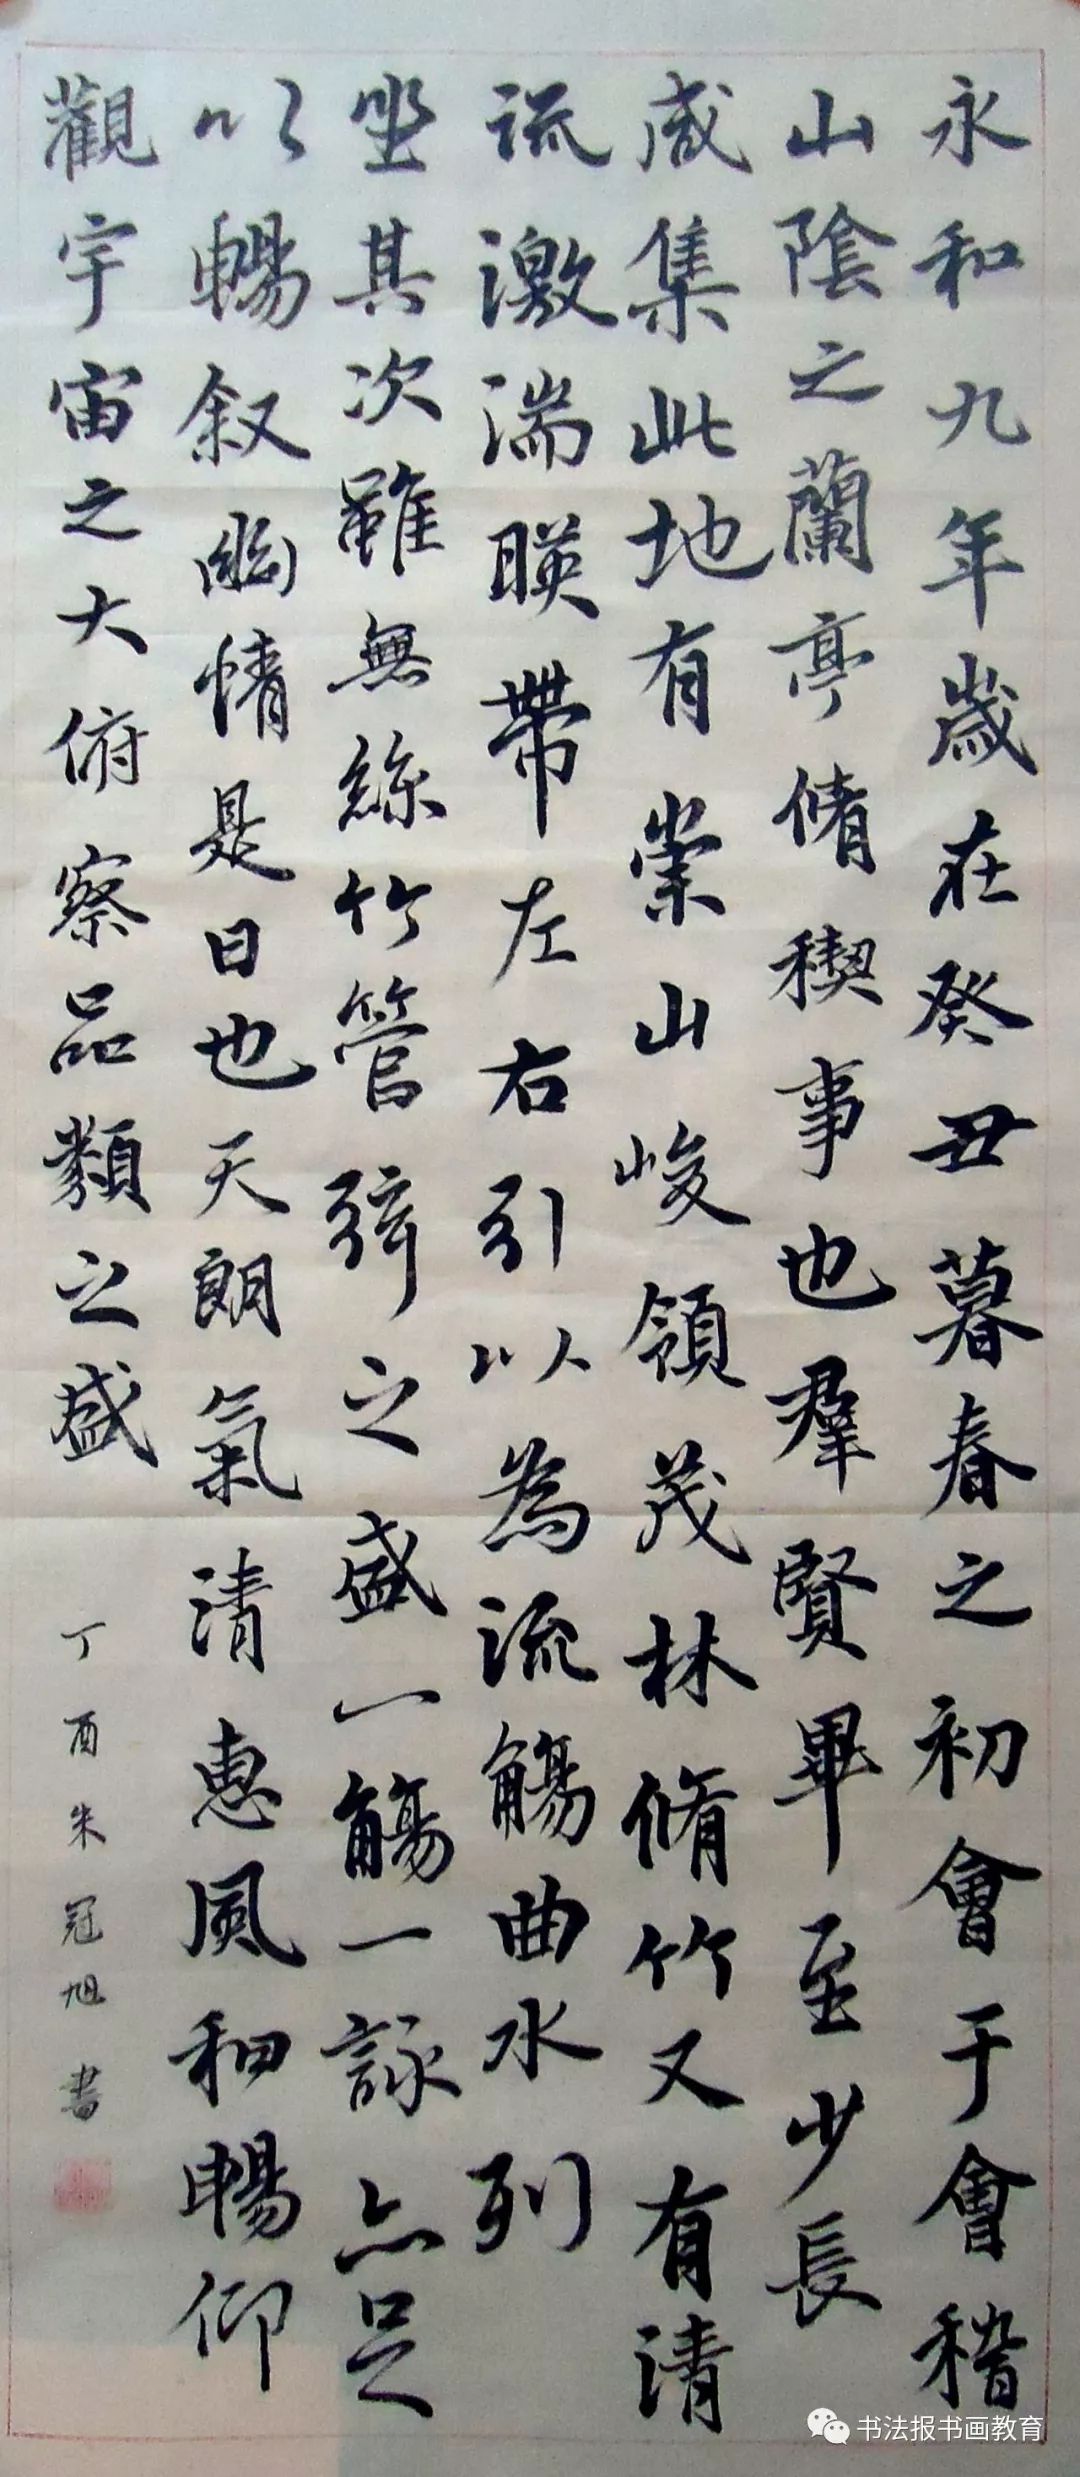 永和九年歲在癸丑暮春之初會于會稽
山陰之蘭亭脩稧事也羣賢畢至少長
咸集此地有崇山峻領茂林脩竹又有清
流激湍暎帶左右引以為流觴曲水列
坐其次雖無絲竹管弦之盛一觴一詠亦足
以暢叙幽情是日也天朗氣清惠風和暢仰
觀宇宙之大俯察品類之盛
丁酉朱冠旭書
书法报书画教育